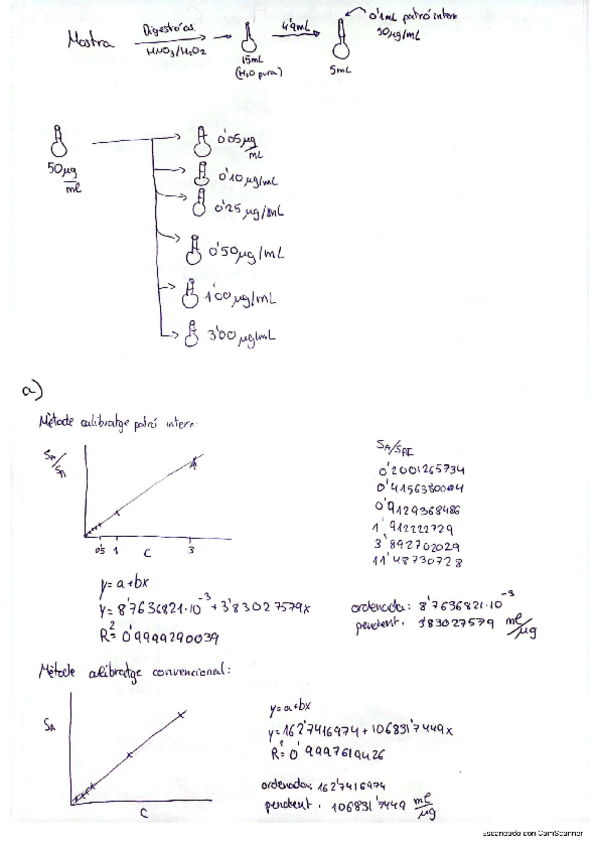 Mostra
Digestió àc.
HNO3/H2O2
15mL
(H2O pura)
4'9mL
5mL
0'1mL patró intern
50µg/mL
50µg/ml
0'05µg/mL
0'10µg/mL
0'25µg/mL
0'50µg/mL
1'00µg/mL
3'00µg/mL
a)
Mètode calibratge patró intern:
SA/SPI
0'5 1 C 3
SA/SPI
0'2001265734
0'4156380004
0'9129368486
1'912222729
3'892702029
11'48730728
y=a+bx
y=8'7636821·10⁻³+3'83027579x
R²=0'9999290039
ordenada: 8'7636821·10⁻³
pendent: 3'83027579 ml/µg
Mètode calibratge convencional:
SA
C
y=a+bx
y=162'7416974+106831'7449x
R²=0'9997619426
ordenada: 162'7416974
pendent: 106831'7449 ml/µg
Escaneado con CamScanner